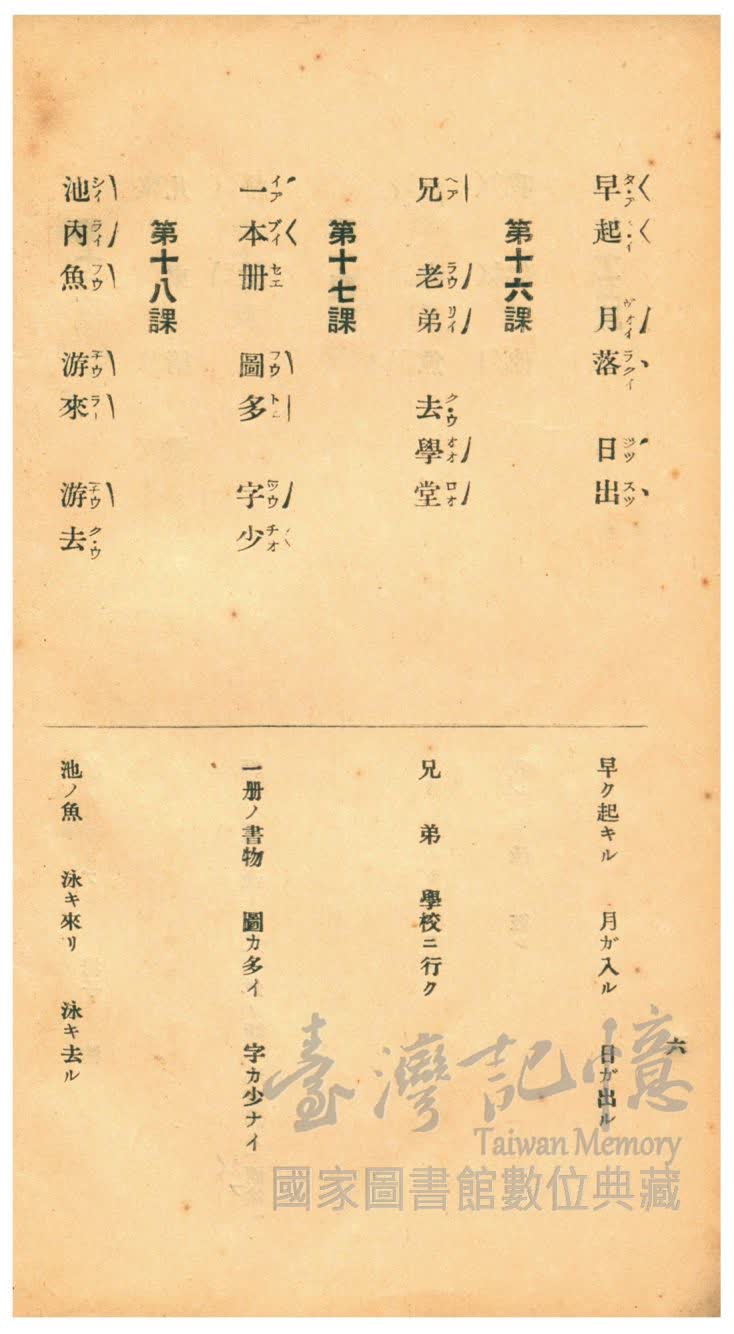 早起 月落 日出
第十六課
兄 老弟 去學堂
第十七課
一本册 圖多 字少
第十八課
池內魚 游來 游去
早ク起キル 月ガ入ル 日ガ出ル
兄弟 學校ニ行ク
一册ノ書物 圖カ多イ 字カ少ナイ
池ノ魚 泳キ來リ 泳キ去ル
六
臺灣記憶
Taiwan Memory
國家圖書館數位典藏